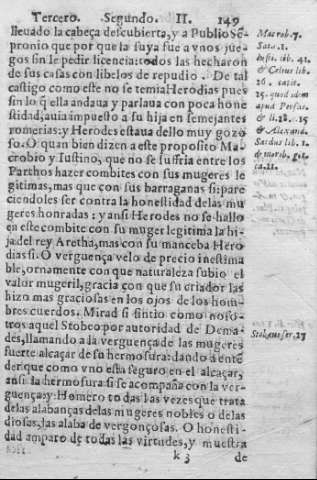 Tercero. Segundo. II. 149
lleuado la cabeça descubierta, y a Publio Sẽ-
pronio que por que la suya fue a vnos jue-
gos sin le pedir licencia: todos las hecharon
de sus casas con libelos de repudio. De tal
castigo como este no se temia Herodias pues
sin lo q̃ ella andaua y parlaua con poca hone
stidad, auia impuesto a su hija en semejantes
romerias: y Herodes estaua dello muy gozo
so. O quan bien dizen a este proposito Ma-
crobio y Iustino, que no se suffria entre los
Parthos hazer combites con sus mugeres le
gitimas, mas que con sus barraganas si: pare
ciendoles ser contra la honestidad delas mu
geres honradas: y ansi Herodes no se hallo
en este combite con su muger legitima la hi-
ja del rey Aretha, mas con su manceba Hero
dias si. O verguença velo de precio inestima
ble, ornamento con que naturaleza subio el
valor mugeril, gracia con que su criador las
hizo mas graciosas en los ojos de los hom-
bres cuerdos. Mirad si sintio como noso-
tros aquel Stobeo por autoridad de Dema-
des, llamando a la verguença de las mugeres
fuerte alcaçar de su hermosura: dando à ente
der que como vno esta seguro en el alcaçar,
ansi la hermosura si se acompaña con la ver-
guença: y Homero todas las vezes que trata
delas alabanças delas mugeres nobles o delas
diosas, las alaba de vergonçosas. O honesti-
dad amparo de todas las virtudes, y muestra
k 3 de
Macrob. 7.
Satu. 1.
Iusti. lib. 41.
& Celius lib.
apud Persas.
& li. 28. 15
& Alexand.
Sardus lib. 1.
Stobaeus ser. 27